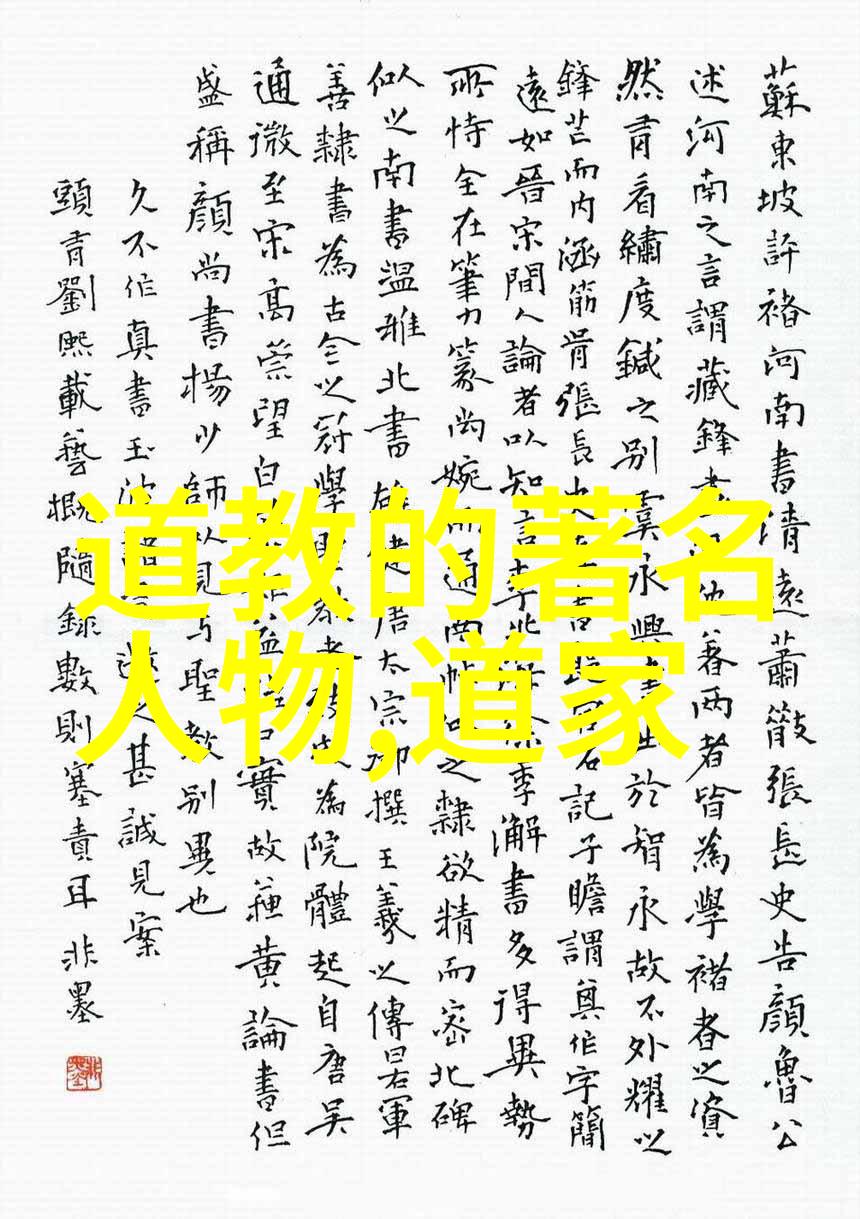 蘇東坡許褚河南書清遠蕭散張長史告顏魯公
述河南之言謂藏鋒畫 者兩者皆為學褚者之資
然青看繡度鍼之別虞永興書出於智永故不外耀以
鋒芒而內涵筋骨張長史 書 記子瞻謂其作字簡
遠如晉宋間人論者以知言李北海 書多得異勢
所恃全在筆力篆尚婉而通南帖似之隸欲精而密北碑
似之南書溫雅北書雄健唐太宗御撰王羲之傳右軍
善隸書為古今之冠學 為院體起自唐吳
通微至宋高崇望白 故蘇黃論書但
盛稱顏尚書楊少師以見與聖教別異也
久不作真書 之甚誠見案
頭有劉熙載藝概隨錄數則塞責耳非墨
道教的著名
人物,道家